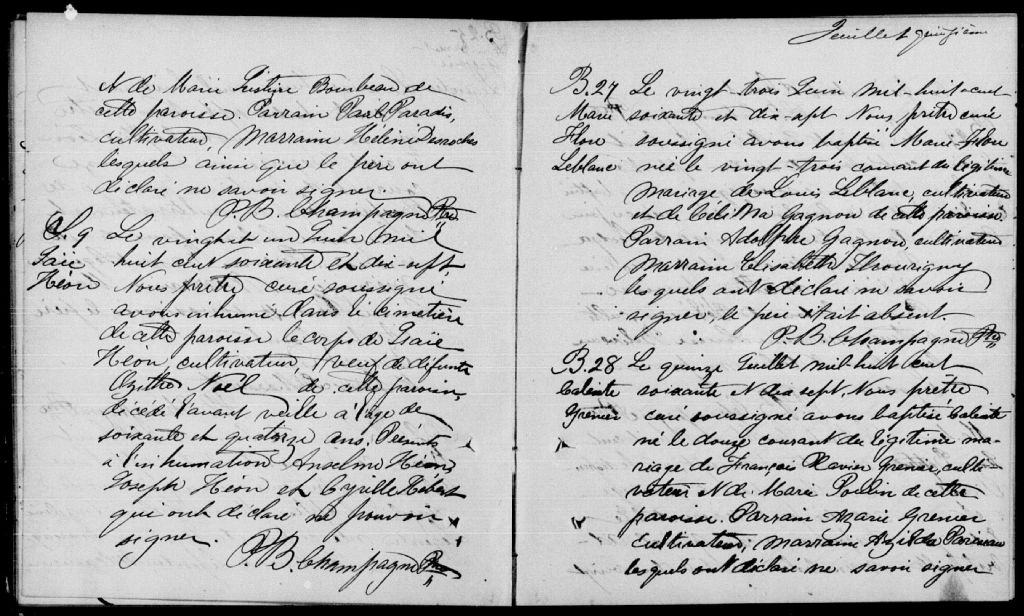 & de Marie Justine Bourbeau de
cette paroisse. Parrain Paul Paradis,
cultivateur, Marraine Hélène Desroches
lesquels ainsi que le père ont
déclaré ne savoir signer.
P. B. Champagne Ptre
S. 9 Le vingt et un Juin mil
Isaïe huit cent soixante et dix-sept
Héon Nous prêtre curé soussigné
avons inhumé dans le cimetière
de cette paroisse le corps de Isaïe
Héon cultivateur, veuf de défunte
Ozithe Noël de cette paroisse,
décédé l'avant veille à l'age de
soixante et quatorze ans. Présents
à l'inhumation, Anselme Héon,
Joseph Héon et Cyrille Hébert
qui ont déclaré ne pouvoir
signer.
P. B. Champagne Ptre
Feuillet quinzième
B.27 Le vingt trois Juin mil-huit-cent-
Marie soixante et dix-sept Nous prêtre curé
Flore soussigné avons baptisé Marie Flore
Leblanc née le vingt trois courant du légitime
mariage de Louis Leblanc, cultivateur
et de Célina Gagnon de cette paroisse
Parrain Adolphe Gagnon, cultivateur
Marraine Elisabeth Thourigny
lesquels ont déclaré ne savoir
signer, le père était absent.
P. B. Champagne Ptre
B.28 Le quinze Juillet mil-huit cent
Calixte soixante & dix sept, Nous prêtre
Grenier curé soussigné avons baptisé Calixte
né le douze courant du légitime ma-
riage de François Flavien Grenier, culti-
vateur & de Marie Poulin de cette
paroisse. Parrain Azarie Grenier
cultivateur, Marraine Azilda
lesquels ont déclaré ne savoir signer